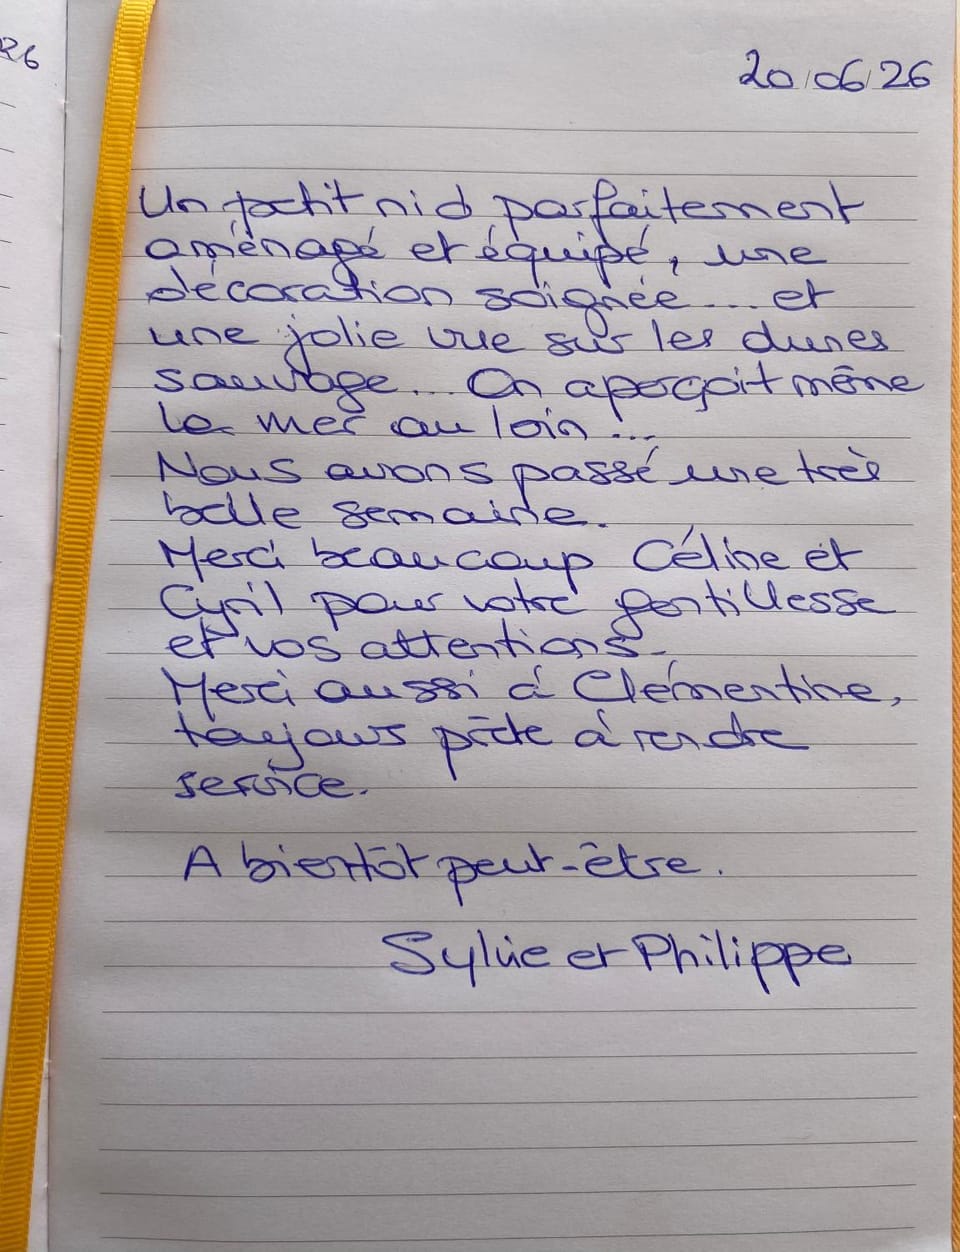 26
20/06/26
Un petit nid parfaitement
aménagé et équipé, une
décoration soignée... et
une jolie vue sur les dunes
sauvage... On aperçoit même
la mer au loin...
Nous avons passé une très
belle semaine.
Merci beaucoup Céline et
Cyril pour votre gentillesse
et vos attentions.
Merci aussi à Clémentine,
toujours prête à rendre
service.
A bientôt peut-être.
Sylvie et Philippe